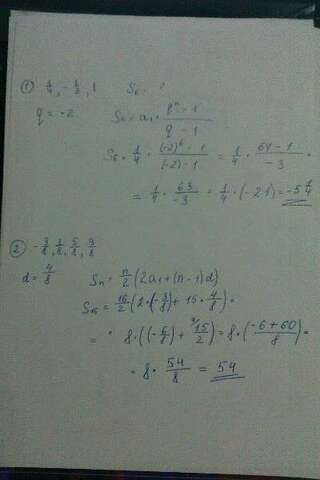 ① 1/4, -1/2, 1 S₆ = ?
q = -2 Sₙ = a₁ · (qⁿ - 1)/(q - 1)
S₆ = 1/4 · ((-2)⁶ - 1)/((-2) - 1) = 1/4 · (64 - 1)/(-3) =
= 1/4 · 63/(-3) = 1/4 · (-21) = -5 1/4
② -3/8, 1/8, 5/8, 9/8
d = 4/8 Sₙ = n/2 (2a₁ + (n - 1)d)
S₁₆ = 16/2 (2 · (-3/8) + 15 · 4/8) =
= 8 · ((-6/8) + 15/2) = 8 · ((-6 + 60)/8) =
= 8 · 54/8 = 54